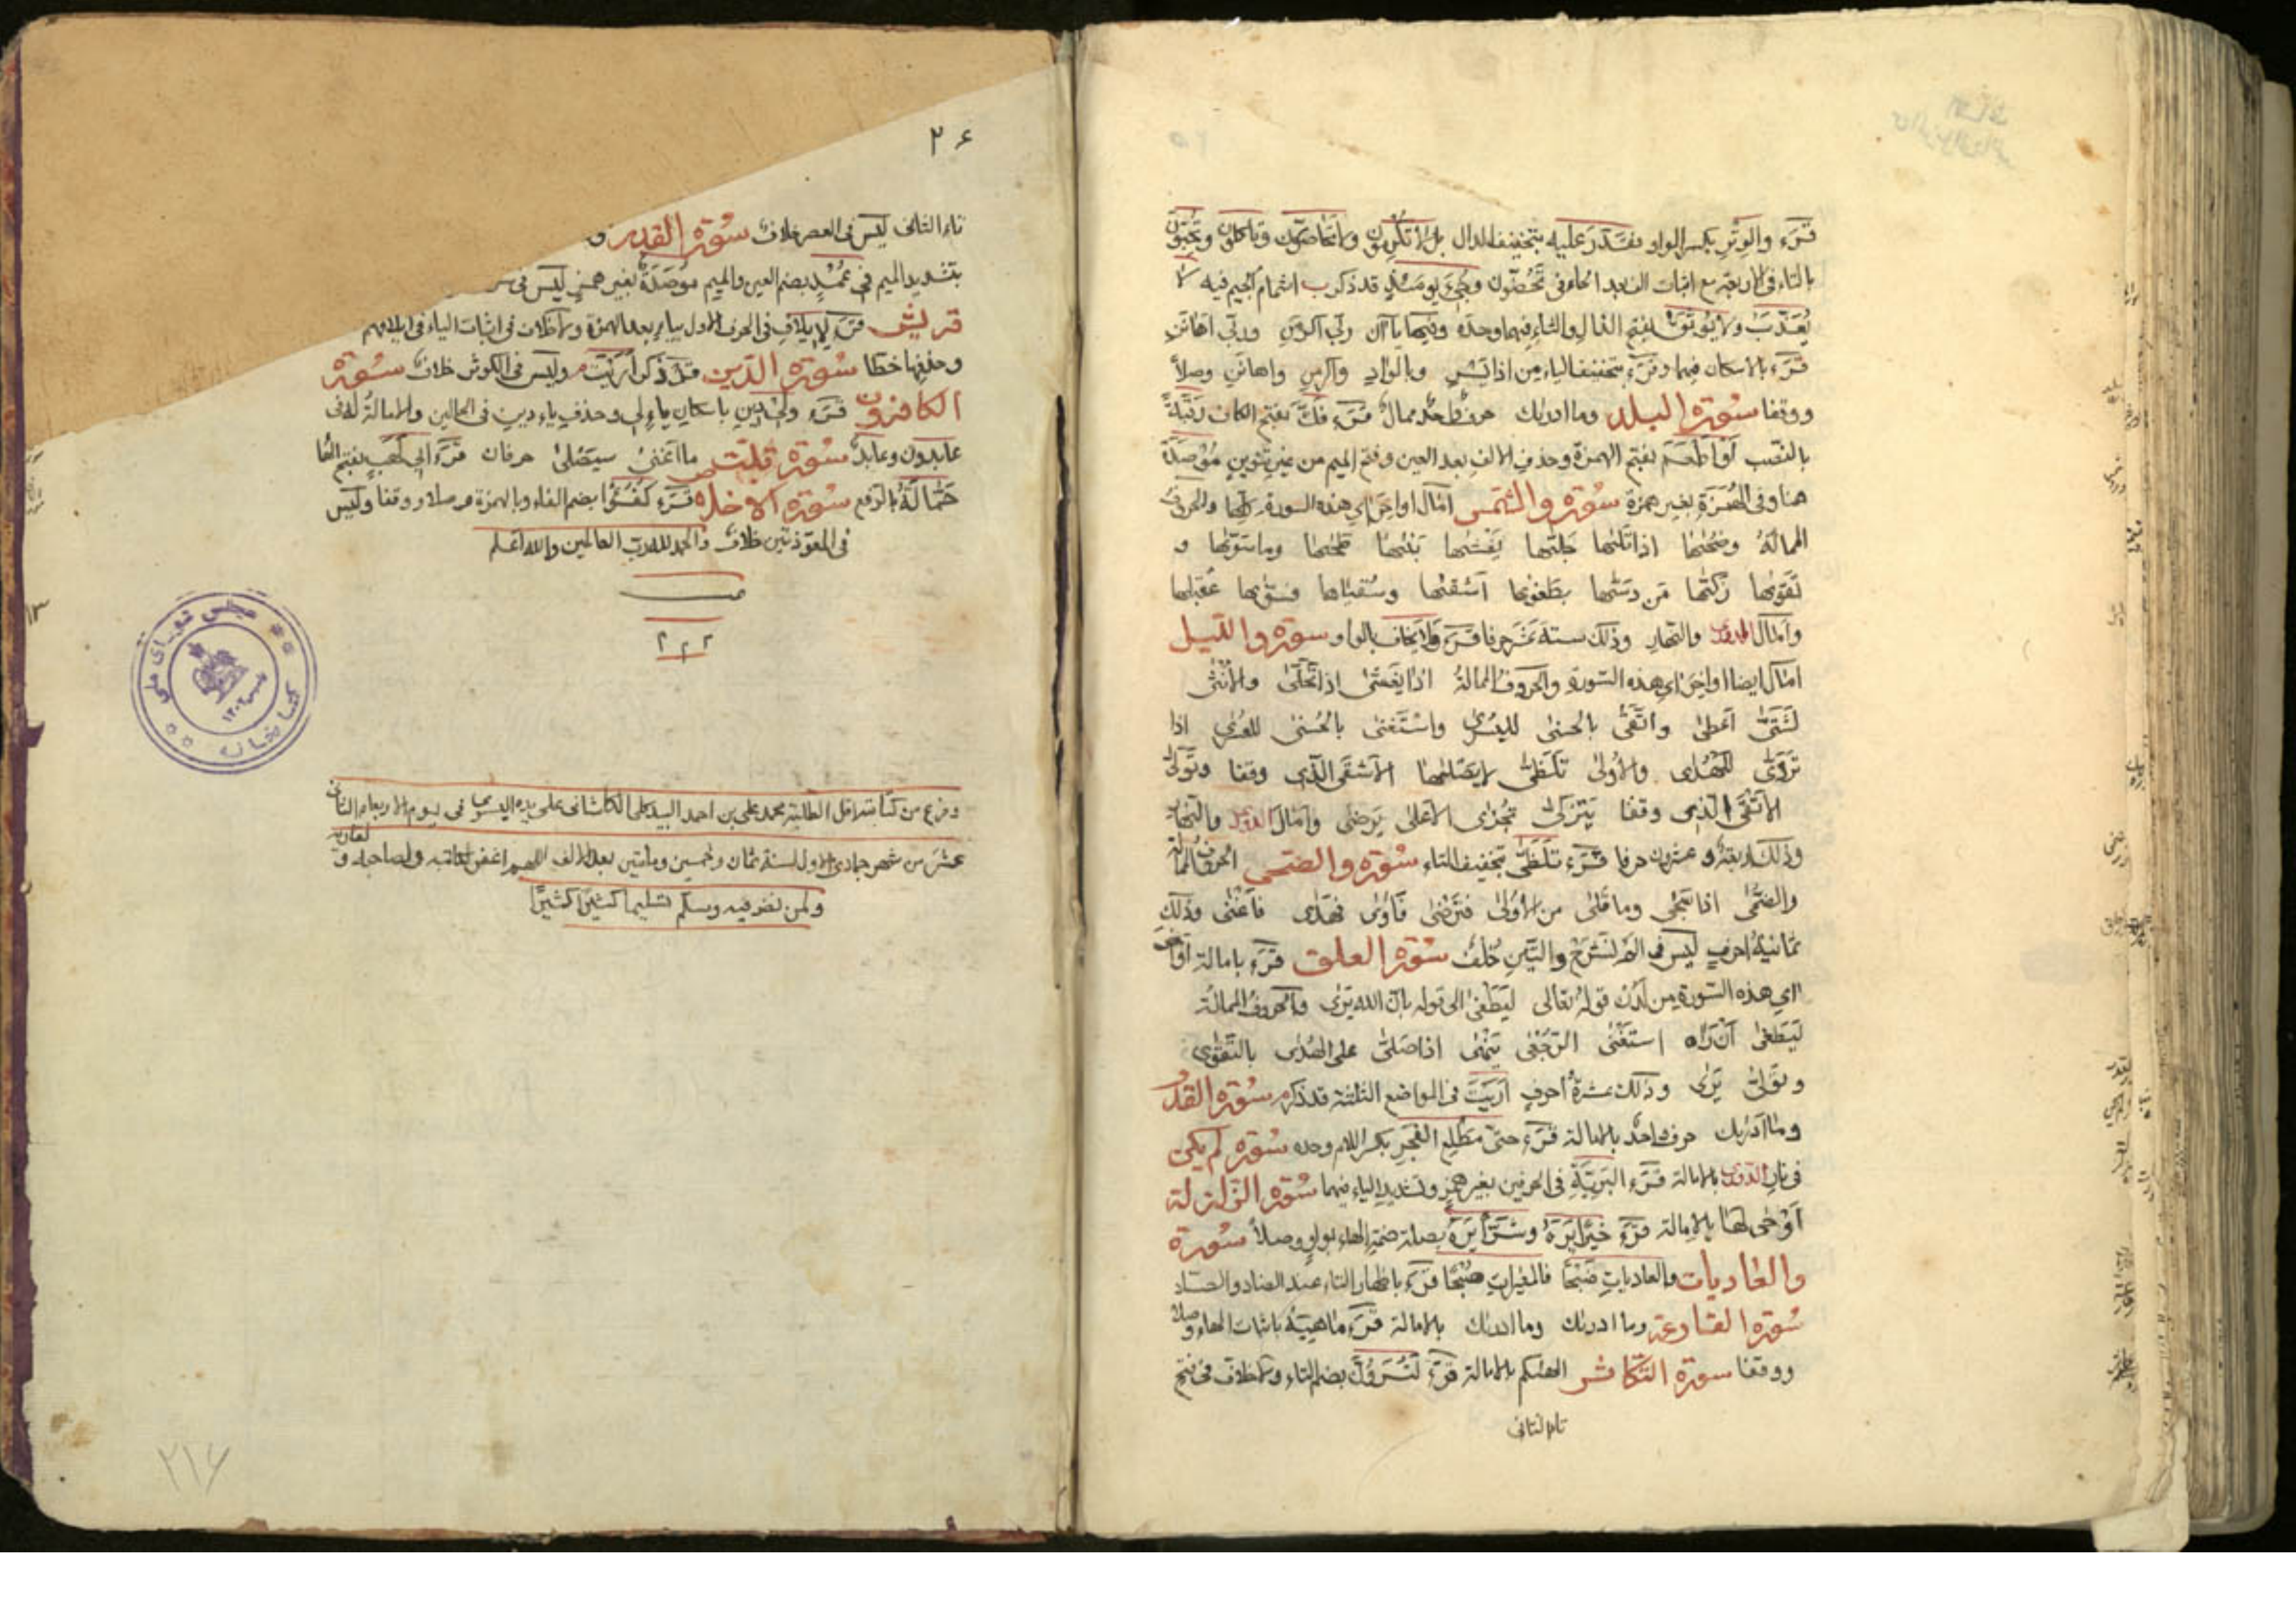 قرء والوتر بكسر الواو فقدر عليه بتخفيف الدال بل لا تكرمون ولا تحاضون وتاكلون وتحبون
بالتاء فى الاربعة مع اثبات الف بعد الحاء فى تحضون وجىء يومئذ قد ذكر اشمام الجيم فيه لا
يعذب ولا يوثق بفتح الذال والثاء فيهما وحده وفيها ياآن ربى اكرمن وربى اهانن
قرء بالاسكان فيهما وقرء بتخفيف الياء من اذا يسر وبالواد واكرمن واهانن وصلاً
ووقفا سورة البلد وما ادريك حرف واحد ممال قرء فك بفتح الكاف رقبةً
بالنصب او اطعم بفتح الهمزة وحذف الالف بعد العين وفتح الميم من غير تنوين موصدة
هنا وفى الهمزة بغير همزة سورة والشمس امال اواخر اى هذه السورة كلها والحروف
الممالة وضحيها اذا تليها جليها يغشيها بنيها طحيها وما سويها و
تقويها زكيها من دسيها بطغويها اشقيها وسقياها فسويها عقبيها
وامال الدورى والنهار وذلك ستة عشر حرفا قرء ولا يخاف بالواو سورة والليل
امال ايضا اواخر اى هذه السورة والحروف الممالة اذا يغشى اذا تجلى والانثى
لشتى اعطى واتقى بالحسنى لليسرى واستغنى بالحسنى للعسرى اذا
تردى للهدى والاولى تلظى لا يصليها الاشقى الذى وقفا وتولى
الاتقى الذى وقفا يتزكى تجزى الاعلى يرضى وامال الدورى والنهار
وذلك اربعة وعشرون حرفا قرء تلظى بتخفيف التاء سورة والضحى الحروف الممالة
والضحى اذا سجى وما قلى من الاولى فترضى فآوى فهدى فاغنى وذلك
ثمانية احرف ليس فى الم نشرح والتين خلف سورة العلق قرء بامالة اواخر
اى هذه السورة من لدن قوله تعالى ليطغى الى قوله بان الله يرى والحروف الممالة
ليطغى ان رآه استغنى الرجعى ينهى اذا صلى على الهدى بالتقوى
وتولى يرى وذلك عشرة احرف اريت فى المواضع الثلثة قد ذكر سورة القدر
وما ادريك حرف واحد بالامالة قرء حتى مطلع الفجر بكسر اللام وحده سورة لم يكن
فى نار الدورى بالامالة قرء البرية فى الحرفين بغير همز وتشديد الياء فيهما سورة الزلزلة
اوحى لها بالامالة قرء خيراً يره وشراً يره بصلة ضمة الهاء بواو وصلاً سورة
والعاديات والعاديات ضبحا فالمغيرات صبحا قرء باظهار التاء عند الضاد والصاد
سورة القارعة وما ادريك وما ادريك بالامالة قرء ما هيه باثبات الهاء وصلا
ووقفا سورة التكاثر الهيكم بالامالة قرء لترون بضم التاء ولا خلاف فى فتح
تاء الثانى
٢٦
تاء الثانى ليس فى العصر خلاف سورة
بتشديد الميم فى عمد بضم العين والميم موصدة بغير همز ليس فى
قريش قرء لايلاف فى الحرف الاول بياء بعد الهمزة ولا خلاف فى اثبات الياء فى ايلافهم
وحذفها خطا سورة الدين قد ذكر اريت وليس فى الكوثر خلاف سورة
الكافرون قرء ولى دين باسكان ياء لى وحذف ياء دين فى الحالين والامالة له فى
عابدون وعابد سورة تبت ما اغنى سيصلى حرفان قرء ابى لهب بفتح الهاء
حمالة بالرفع سورة الاخلاص قرء كفؤا بضم الفاء وبالهمزة وصلا ووقفا وليس
فى المعوذتين خلاف والحمد لله رب العالمين والله اعلم
وفرغ من كتابته اقل الطلبة محمد على بن احمد السيد على الكاشانى على يده اليسرى فى يوم الاربعاء الثانى
عشر من شهر جمادى الاول لسنة ثمان وخمسين ومأتين بعد الالف اللهم اغفر لكاتبه ولصاحبه و لقاريه
ولمن نظر فيه وسلم تسليما كثيرا كثيرا
كتابخانه مجلس شوراى ملى
٢١٦